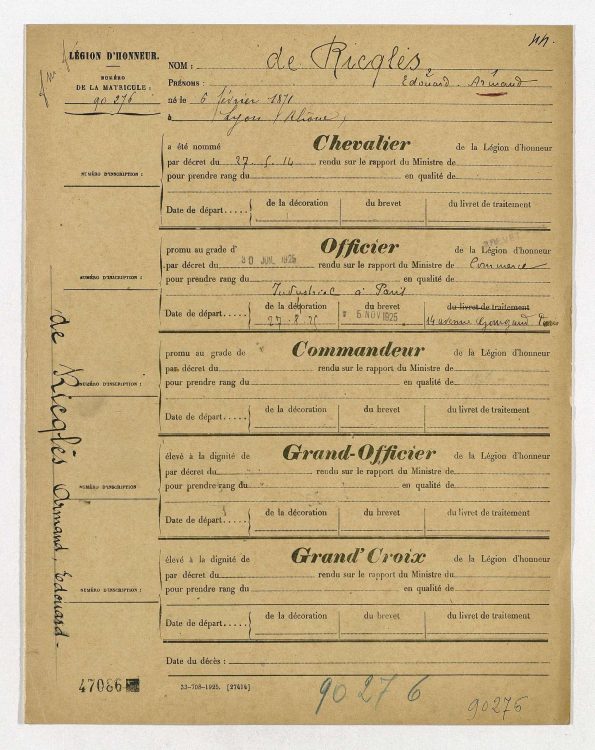 nn.
LÉGION D'HONNEUR.
NUMÉRO
DE LA MATRICULE :
90 276
NOM : de Ricqlès
PRÉNOMS : Edouard - Armand
2 1
né le 6 février 1871
à Lyon (Rhône)
a été nommé Chevalier de la Légion d'honneur
par décret du 27. 5. 14 rendu sur le rapport du Ministre de
NUMÉRO D'INSCRIPTION :
pour prendre rang du en qualité de
Date de départ..... de la décoration du brevet du livret de traitement
promu au grade d' Officier de la Légion d'honneur
par décret du 30 JUIL 1925 rendu sur le rapport du Ministre de Commerce
NUMÉRO D'INSCRIPTION :
pour prendre rang du en qualité de
Industriel à Paris
Date de départ..... de la décoration du brevet du livret de traitement
27.8.25 5 NOV 1925 14 avenue Gourgaud Paris
promu au grade de Commandeur de la Légion d'honneur
par décret du rendu sur le rapport du Ministre de
NUMÉRO D'INSCRIPTION :
pour prendre rang du en qualité de
Date de départ..... de la décoration du brevet du livret de traitement
élevé à la dignité de Grand-Officier de la Légion d'honneur
par décret du rendu sur le rapport du Ministre de
NUMÉRO D'INSCRIPTION
pour prendre rang du en qualité de
Date de départ..... de la décoration du brevet du livret de traitement
élevé à la dignité de Grand'Croix de la Légion d'honneur
par décret du rendu sur le rapport du Ministre du
NUMÉRO D'INSCRIPTION :
pour prendre rang du en qualité de
Date de départ..... de la décoration du brevet du livret de traitement
Date du décès :
de Ricqlès Armand, Edouard-
47086
33-708-1925. [27414]
90276
90276